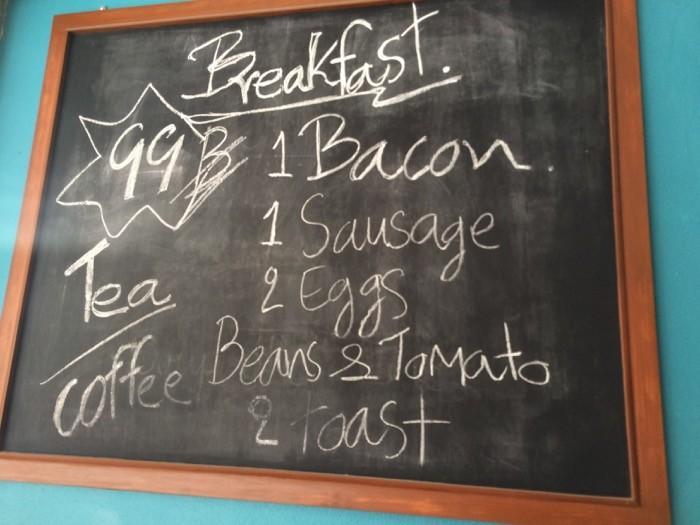 Breakfast.
99 B
1 Bacon.
1 Sausage
2 Eggs
Beans & Tomato
2 toast
Tea
coffee